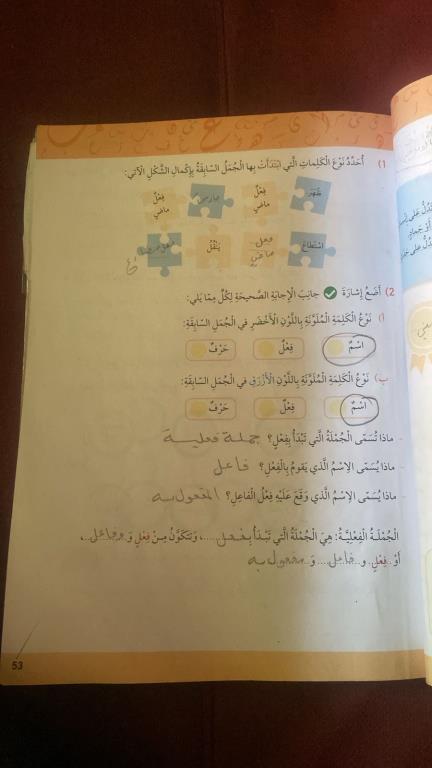 1) أُحَدِّدُ نَوْعَ الْكَلِماتِ الَّتي ابْتَدَأَتْ بِها الْجُمَلُ السّابِقَةُ بِإِكْمالِ الشَّكْلِ الْآتي:
ظَهَرَ فِعْلٌ ماضٍ فِعْلٌ ماضٍ
اسْتَطاعَ فعل ماضي يَنْقُلُ
2) أَضَعُ إِشارَةَ ✓ جانِبَ الْإِجابَةِ الصَّحيحَةِ لِكُلٍّ مِمّا يَلي:
أ) نَوْعُ الْكَلِمَةِ الْمُلَوَّنَةِ بِاللَّوْنِ الْأَخْضَرِ في الْجُمَلِ السّابِقَةِ:
اسْمٌ فِعْلٌ حَرْفٌ
ب) نَوْعُ الْكَلِمَةِ الْمُلَوَّنَةِ بِاللَّوْنِ الْأَزْرَقِ في الْجُمَلِ السّابِقَةِ:
اسْمٌ فِعْلٌ حَرْفٌ
- ماذا تُسَمّى الْجُمْلَةُ الَّتي تَبْدَأُ بِفِعْلٍ؟ جملة فعلية
- ماذا يُسَمّى الِاسْمُ الَّذي يَقومُ بِالْفِعْلِ؟ فاعل
- ماذا يُسَمّى الِاسْمُ الَّذي وَقَعَ عَلَيْهِ فِعْلُ الْفاعِلِ؟ المفعول به
الْجُمْلَةُ الْفِعْلِيَّةُ: هِيَ الْجُمْلَةُ الَّتي تَبْدَأُ بِفعل......، وَتَتَكَوَّنُ مِنْ فِعْلٍ وَ وفاعل...،
أَوْ فِعْلٍ وَ...فاعل... وَ مفعول به
53